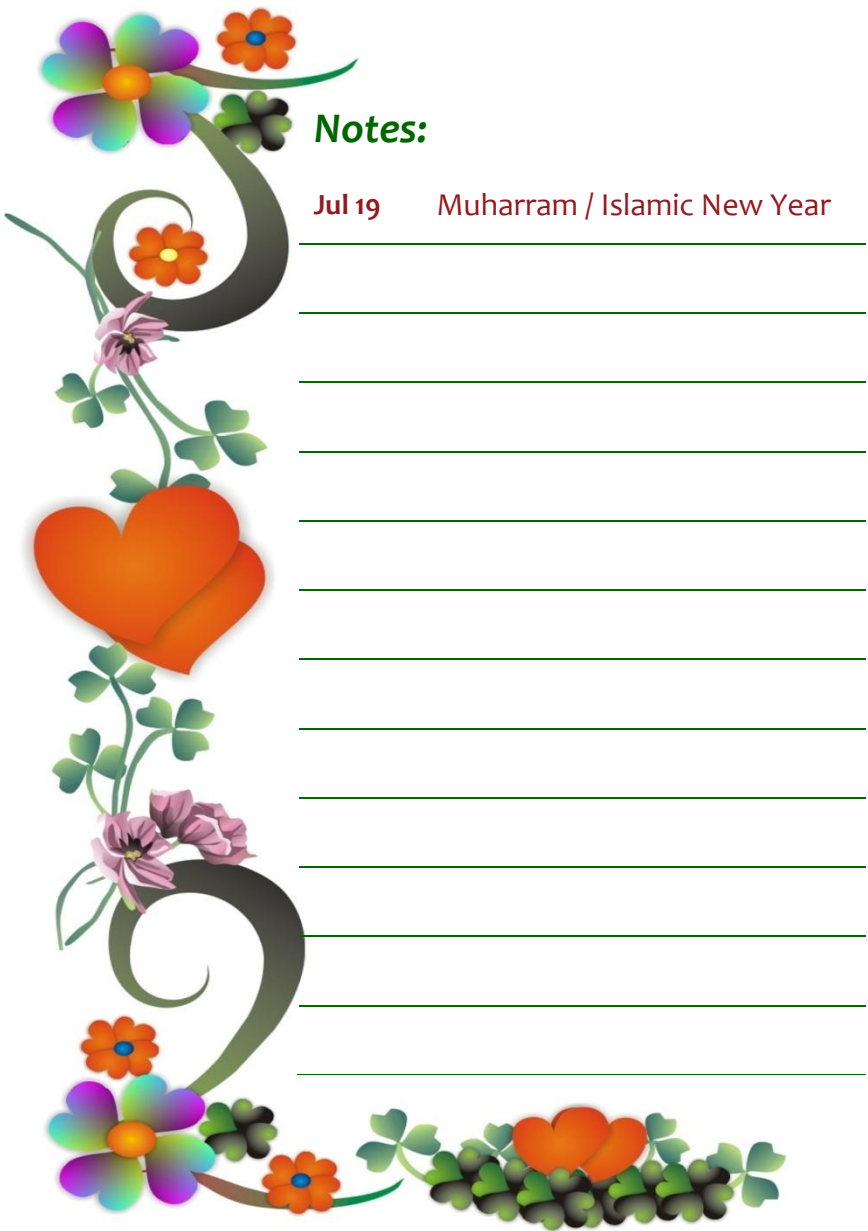 Notes:
Jul 19 Muharram / Islamic New Year